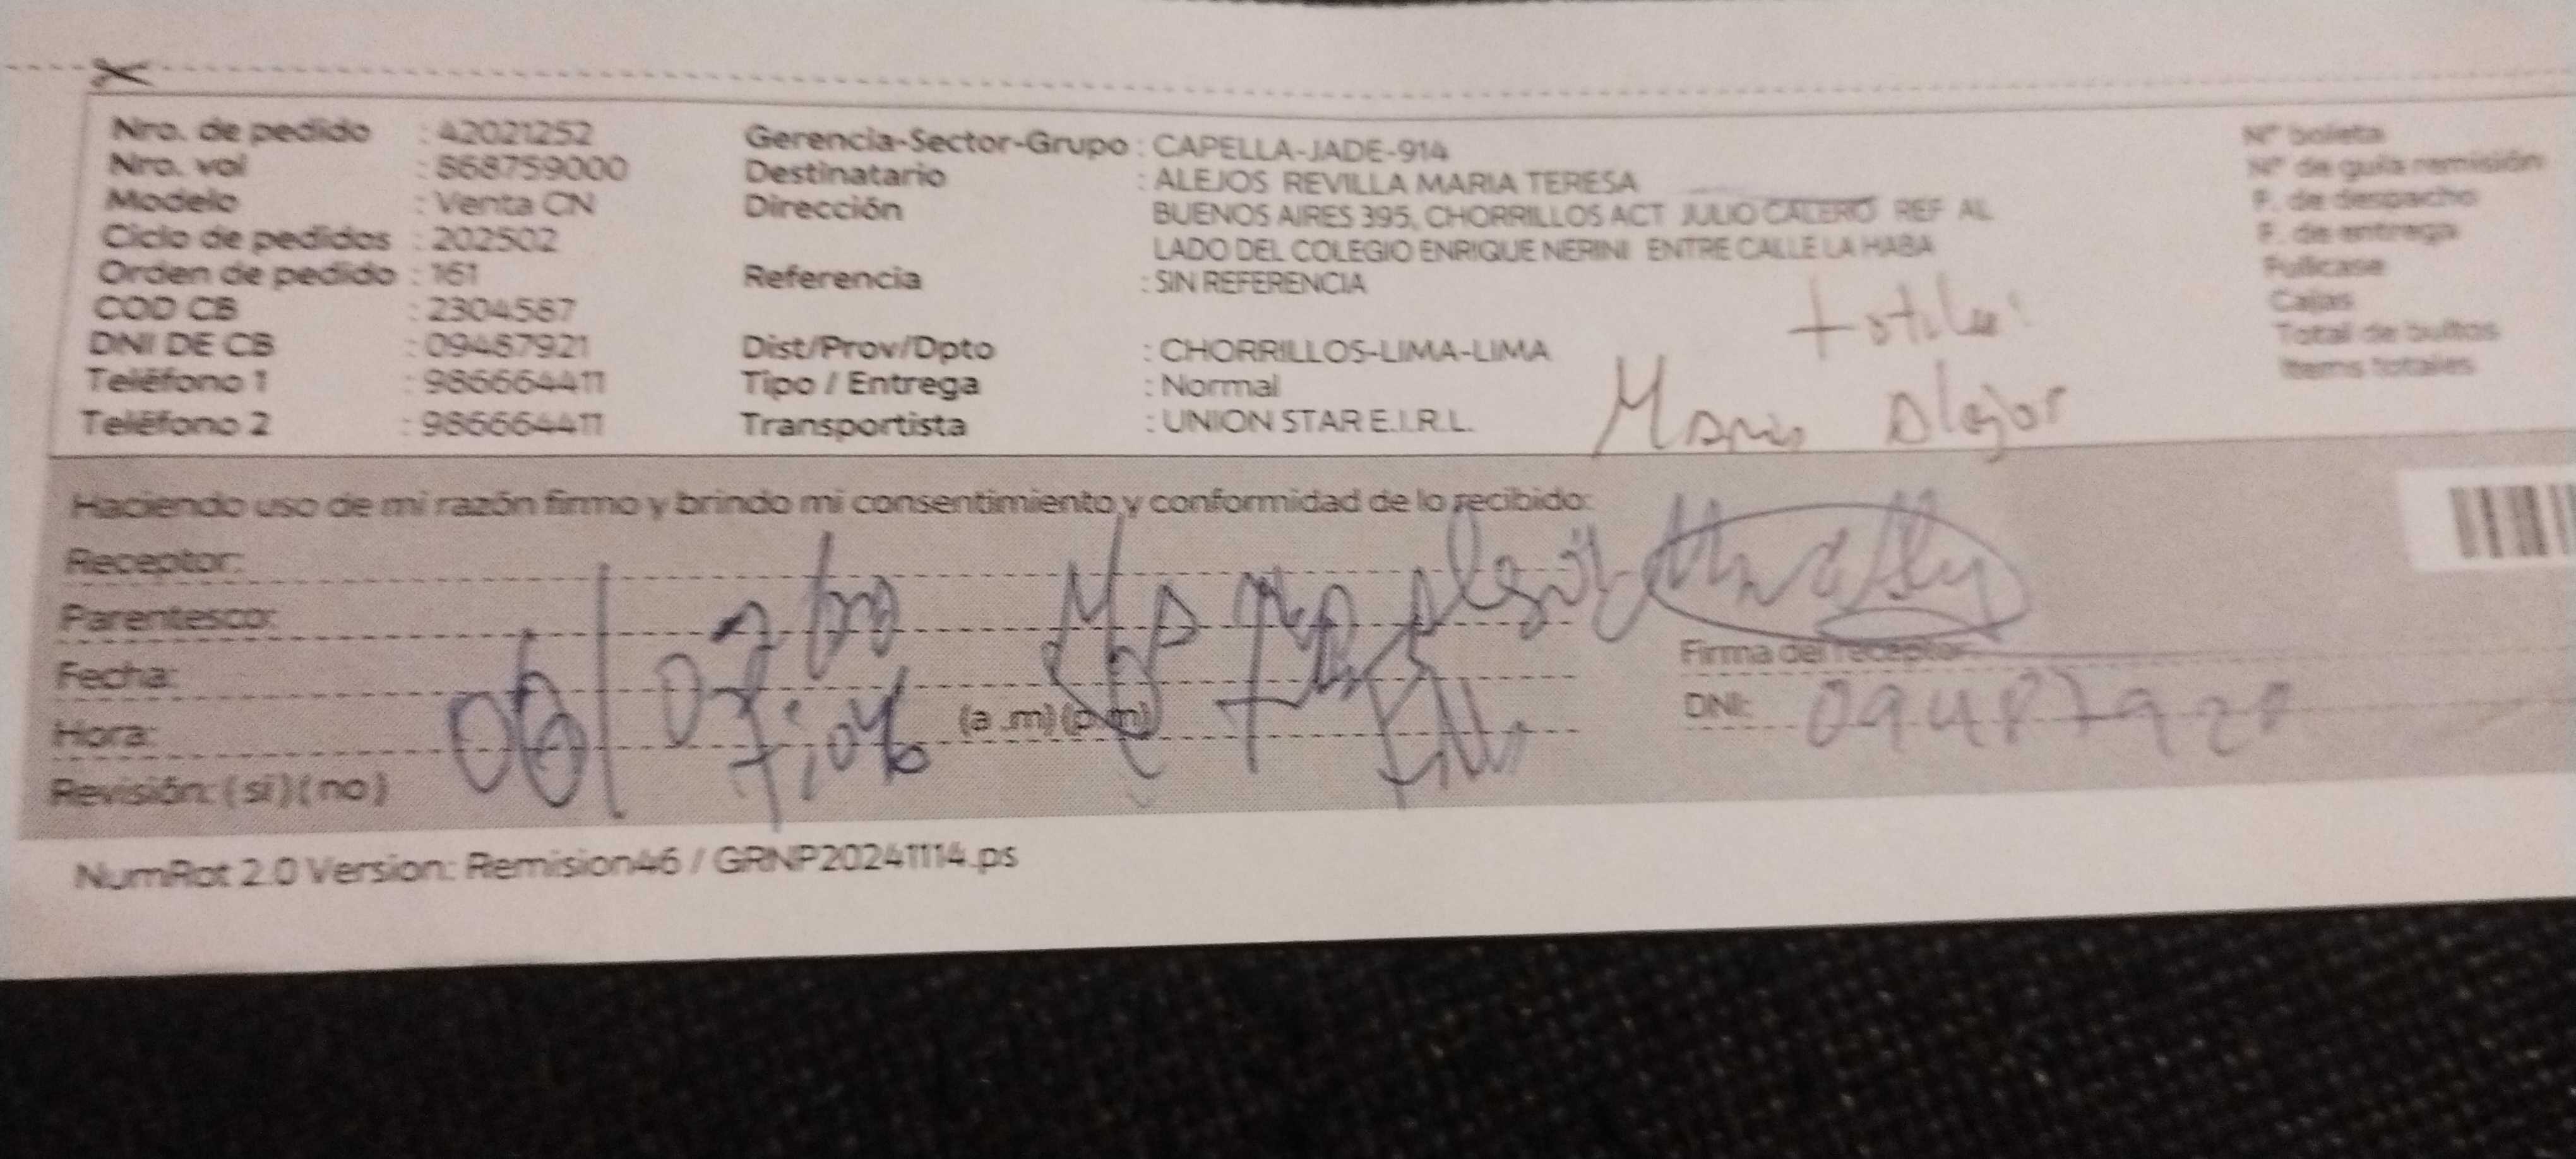 Nro. de pedido : 42021252
Nro. vol : 868759000
Modelo : Venta CN
Ciclo de pedidos : 202502
Orden de pedido : 161
COD CB : 2304587
DNI DE CB : 09487921
Teléfono 1 : 986664411
Teléfono 2 : 986664411
Gerencia-Sector-Grupo : CAPELLA-JADE-914
Destinatario : ALEJOS REVILLA MARIA TERESA
Dirección BUENOS AIRES 395, CHORRILLOS ACT JULIO CALERO REF AL
LADO DEL COLEGIO ENRIQUE NERINI ENTRE CALLE LA HABA
Referencia : SIN REFERENCIA
Dist/Prov/Dpto : CHORRILLOS-LIMA-LIMA
Tipo / Entrega : Normal
Transportista : UNION STAR E.I.R.L.
Maria Alejos
N° boleta
N° de guía remisión
F. de despacho
F. de entrega
Fullcase
Cajas
Total de bultos
Items totales
Haciendo uso de mi razón firmo y brindo mi consentimiento y conformidad de lo recibido:
Receptor:
Parentesco:
Fecha:
Hora: (a.m) (p.m)
Revisión: (si) (no)
Firma del receptor
DNI:
NumRot 2.0 Version: Remision46 / GRNP20241114.ps